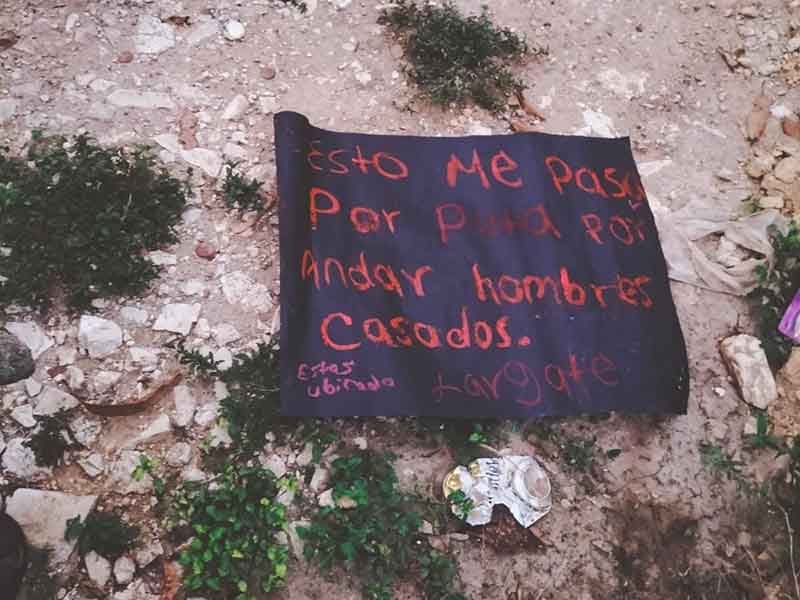 Esto Me Pasa
Por Puta Por
Andar hombres
Casados.
Estas
ubicada
Largate